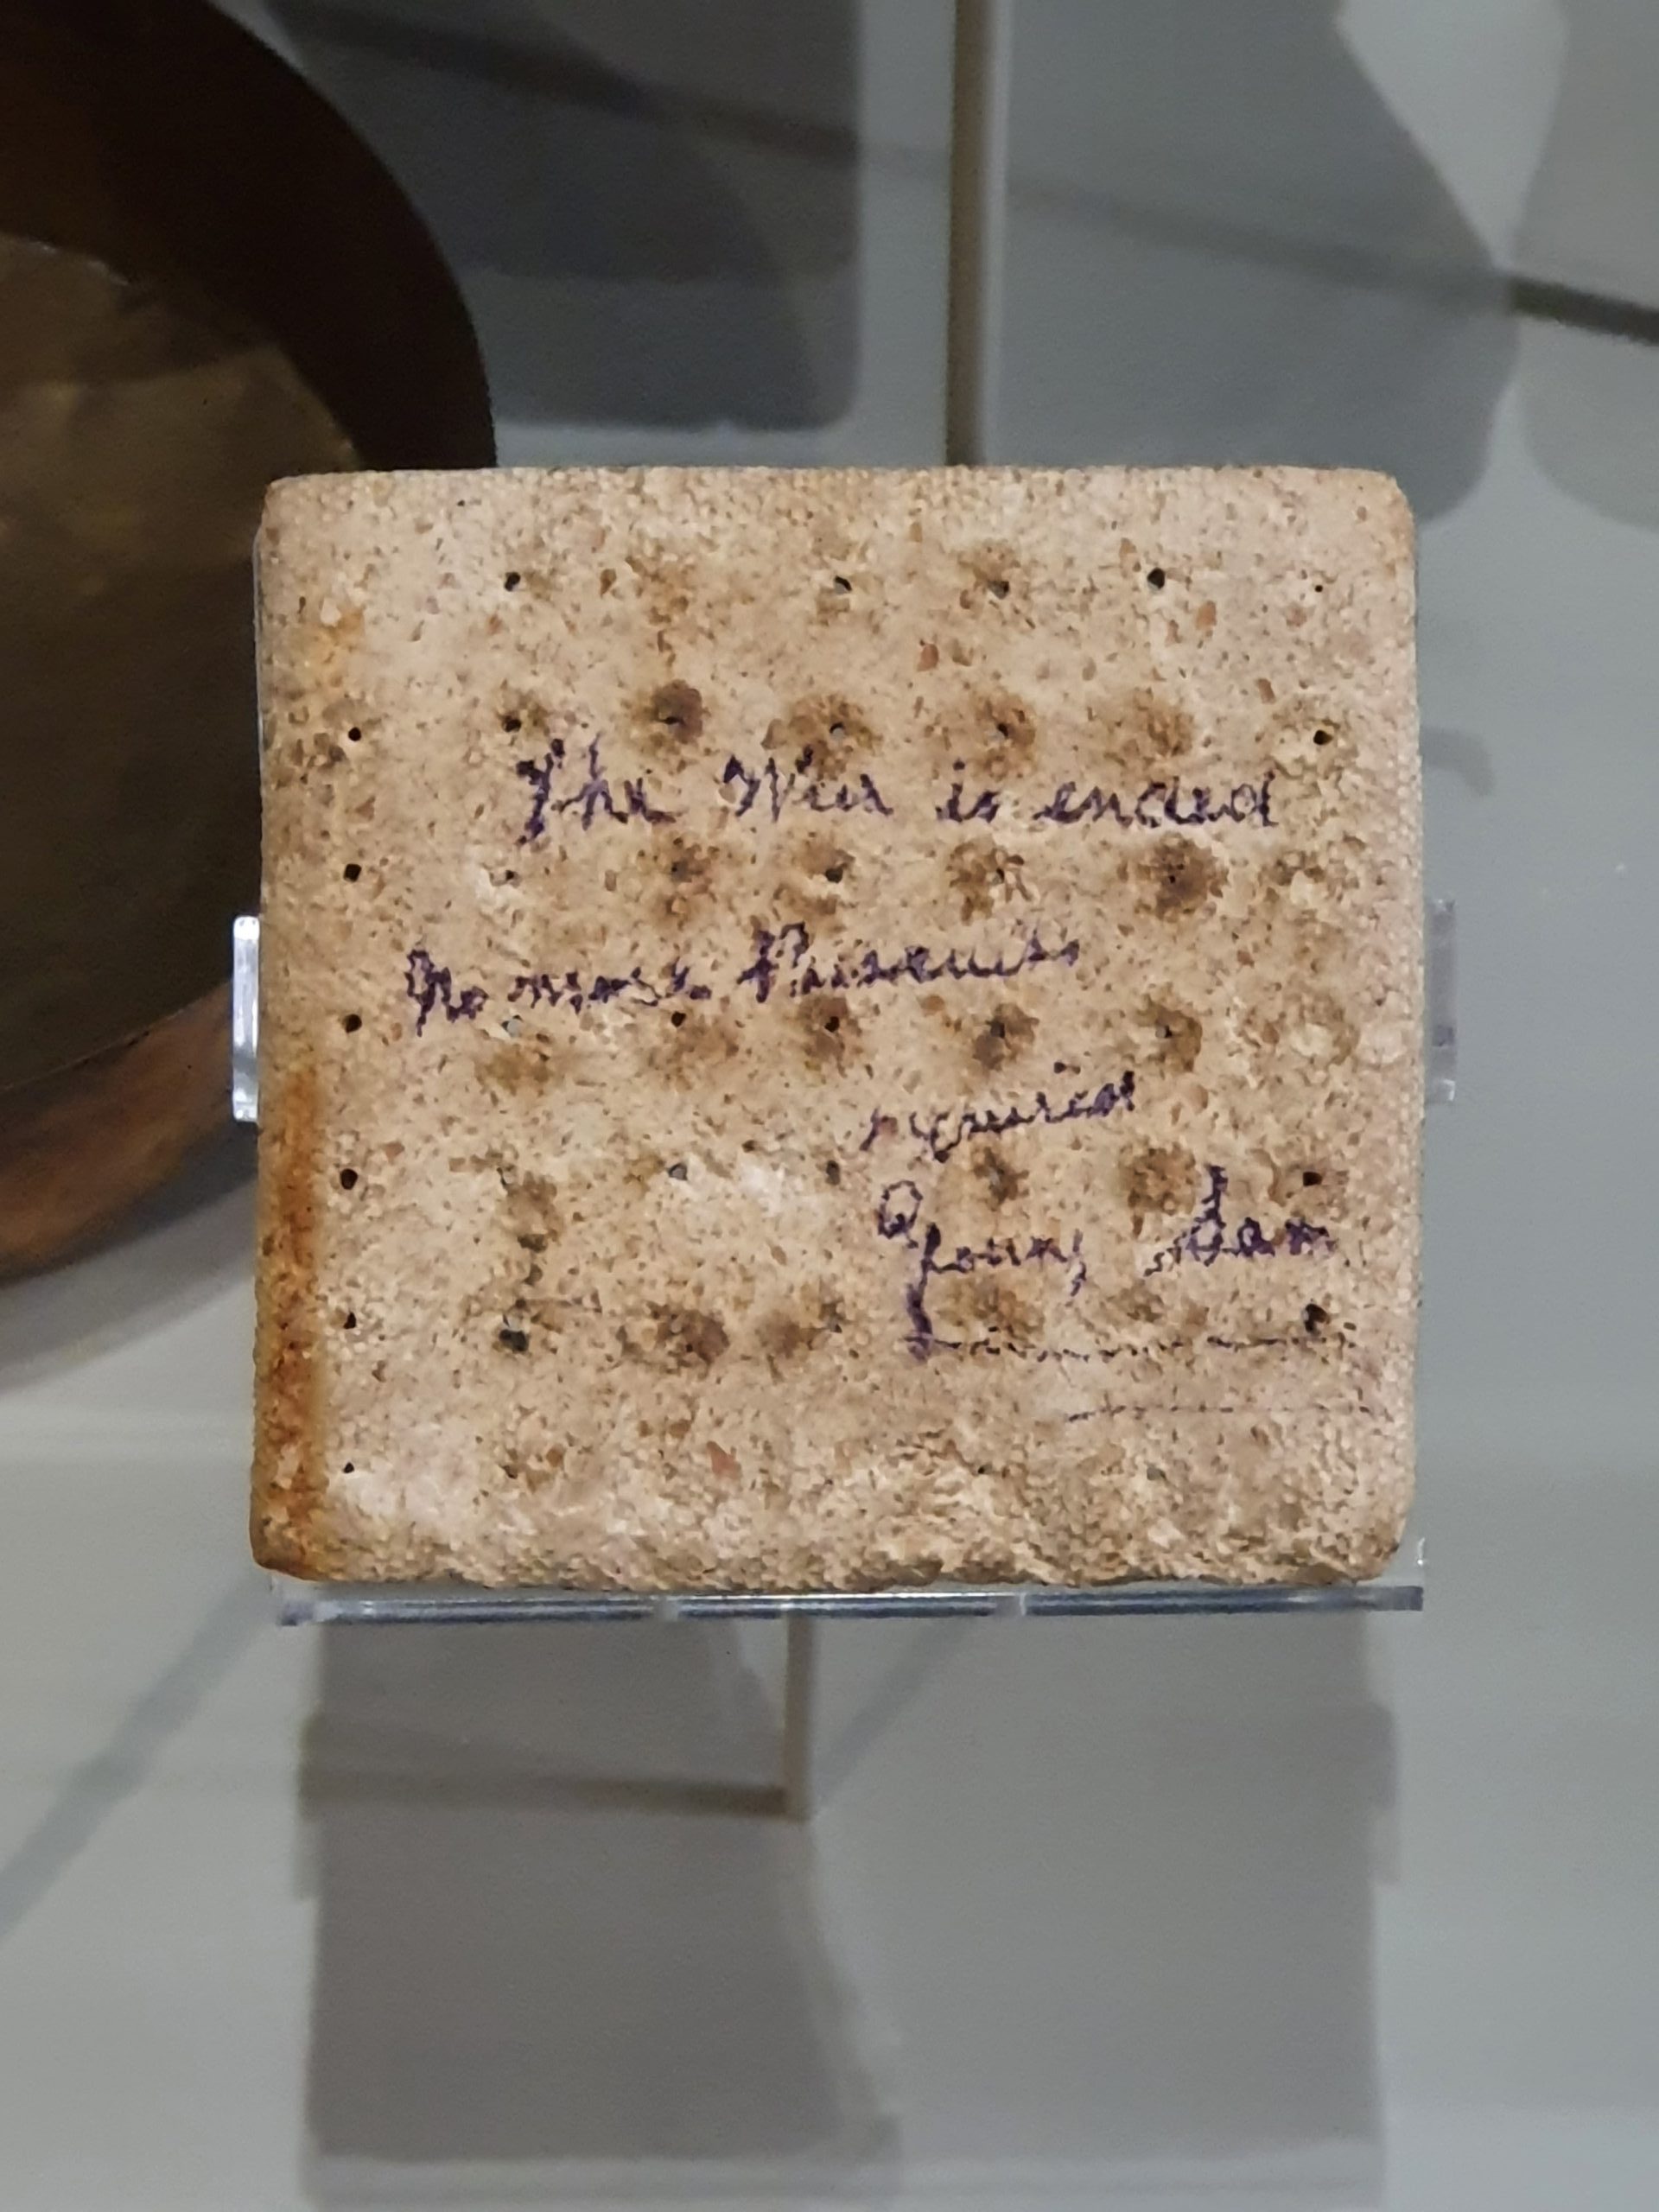 The War is ended
No more Biscuits
required
Young Sam